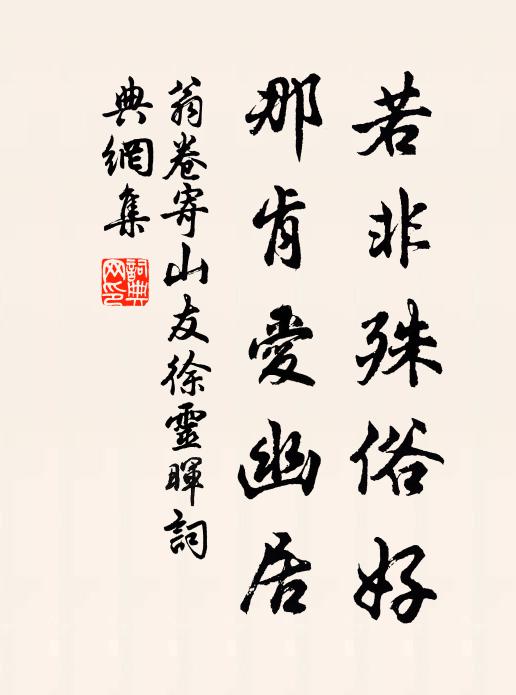 若非殊俗好
那肯愛幽居
翁卷寄山友徐靈暉詞
典網集
詞典
网印